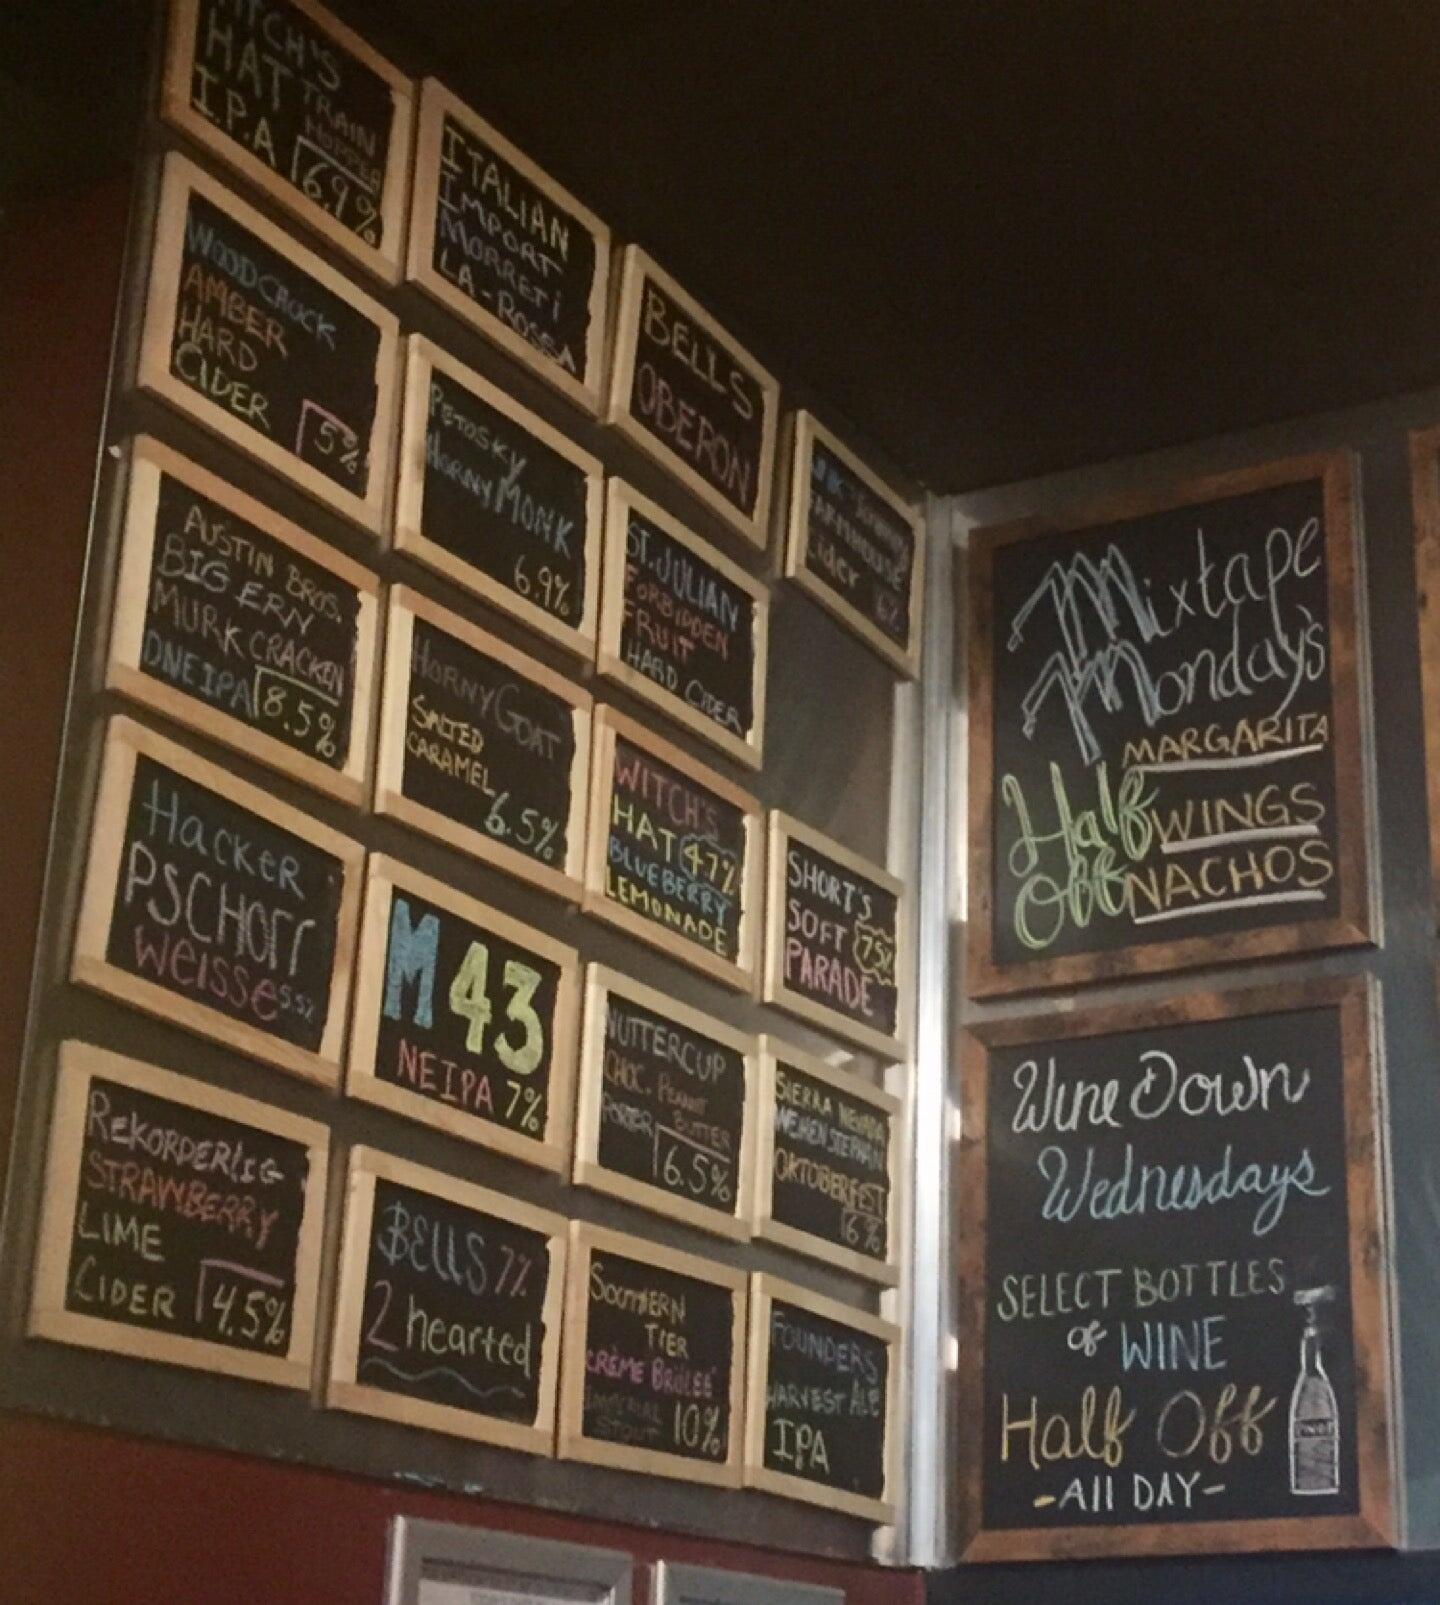 HAT TRAIN
I.P.A HOPPER
6.9%
WOODCHUCK
AMBER
HARD
CIDER
5%
AUSTIN BROS.
BIG ERN
MURK CRACKEN
DNEIPA 8.5%
Hacker
PSCHORR
Weisse 5.5%
REKORDERLIG
STRAWBERRY
LIME
CIDER 4.5%
ITALIAN
IMPORT
MORRETI
LA-ROSSA
PETOSKY
HORNY MONK
6.9%
HORNY GOAT
SALTED
CARAMEL
6.5%
M 43
NEIPA 7%
BELLS 7%
2 hearted
BELLS
OBERON
ST. JULIAN
FORBIDDEN
FRUIT
HARD CIDER
WITCH'S
HAT 4.7%
BLUEBERRY
LEMONADE
NUTTERCUP
CHOC. PEANUT
BUTTER
PORTER 6.5%
SOUTHERN
TIER
CRÈME BRÛLÉE
IMPERIAL
STOUT 10%
FARMHOUSE
Cider 6%
SHORT'S
SOFT 7.5%
PARADE
SIERRA NEVADA
OKTOBERFEST
6%
FOUNDERS
HARVEST ALE
IPA
Mixtape
Monday's
MARGARITA
Half WINGS
Off NACHOS
Wine Down
Wednesdays
SELECT BOTTLES
of WINE
Half Off
-All DAY-